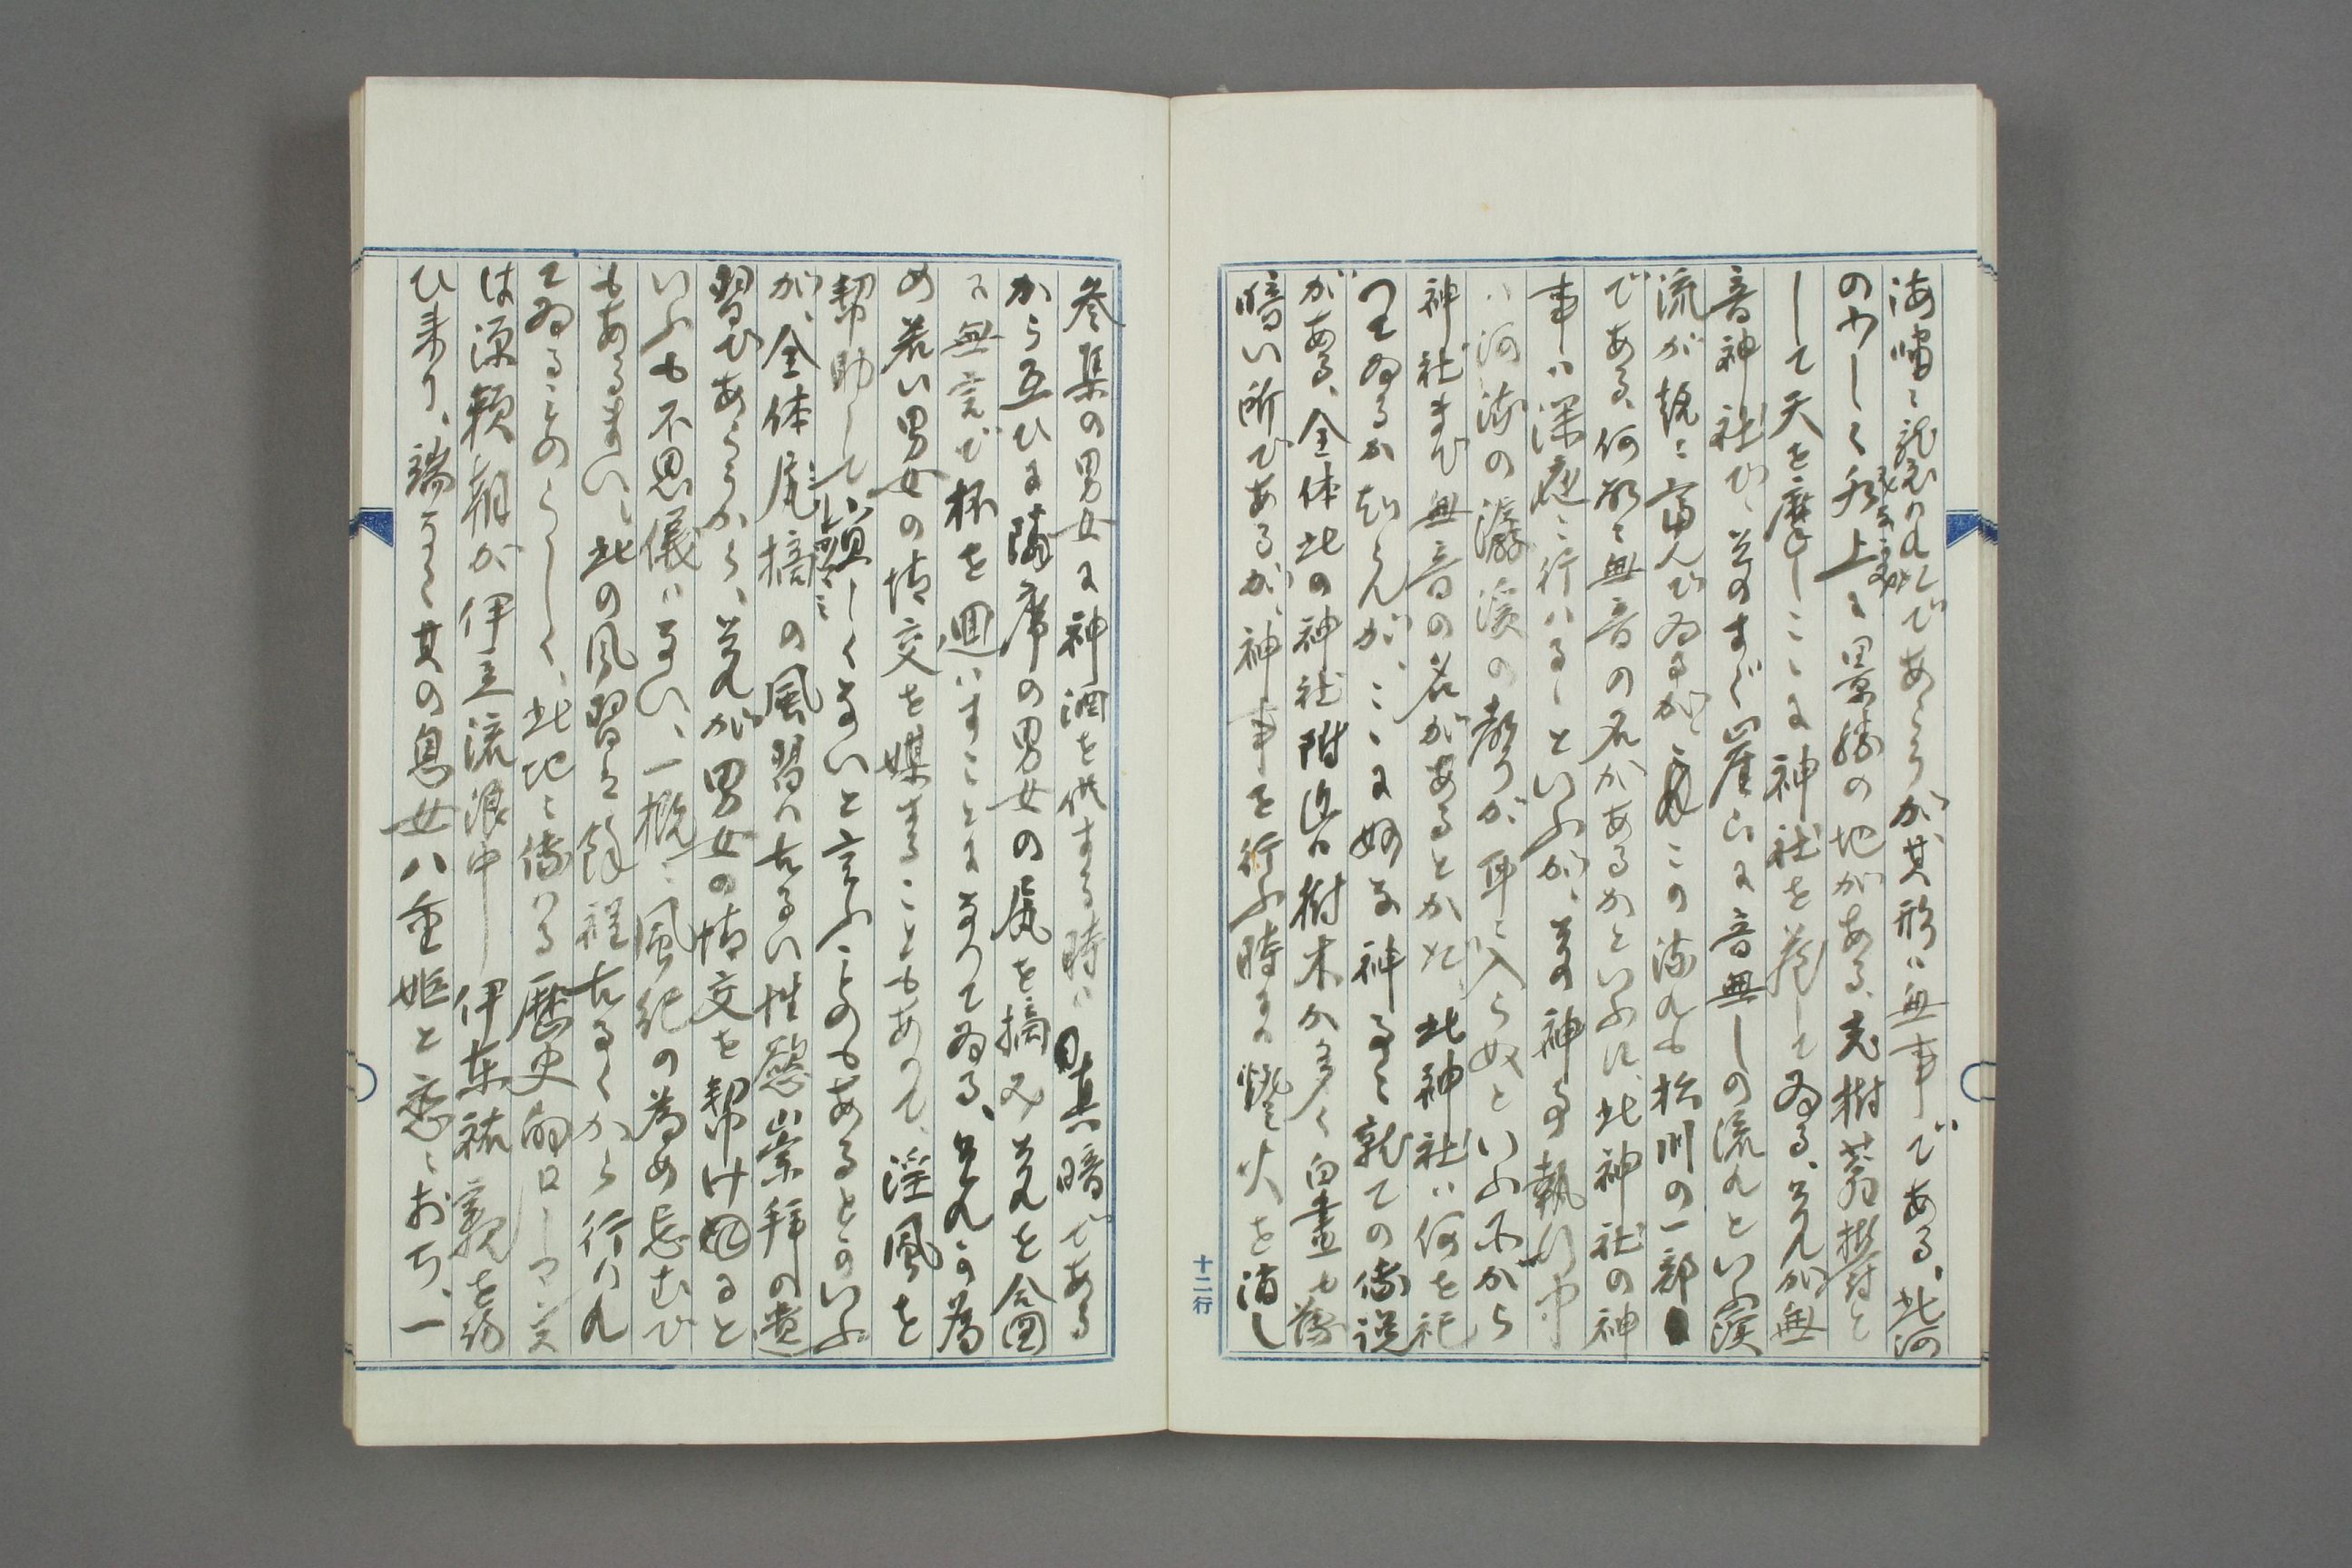 海嘯に襲われてであらうが其形は無事である、此河
のやしく形上に景勝の地がある、老樹蓊欝と
して天を摩しこゝに神社を蔽してゐる、それが無
音神社で、そのすぐ崖下に音無しの流れといふ渓
流が巌に富んでゐるが、この流れも松川の一部
である、何故に無音の名があるかといふに、此神社の神
事は深夜に行はるゝといふが、その神事執行中
は河海の潺渓の声が耳に入らぬといふ所から
神社まで無音の名があるとかだ、此神社は何を祀
つてゐるか知らんが、こゝに妙な神事に就ての伝説
がある、全体此の神社附近は樹木が多く白昼も薄
暗い所であるが、神事を行ふ時には燈火を消し
十二行
参集の男女に神酒を供する時は真暗である
から互ひに隣席の男女の尻を摘みそれを合図
に無言で杯を廻はすことになつてゐる、それが為
め若い男女の情交を媒することもあつて、淫風を
幇助して頗る宜しくないと言ふものもあるとのいふ
が、全体尻摘の風習は古るい性慾崇拝の遺
習であらうから、それが男女の情交を幇けると
いふも不思儀はない、一概に風紀の為め忌むび
もあるまい、此の風習は余程古るくから行はれ
てゐるものらしく、此地に伝はる歴史的ローマンス
は源頼朝が伊豆流浪中ー伊東祐親を訪
ひ来り、端なく其の息女八重姫と恋におち、一